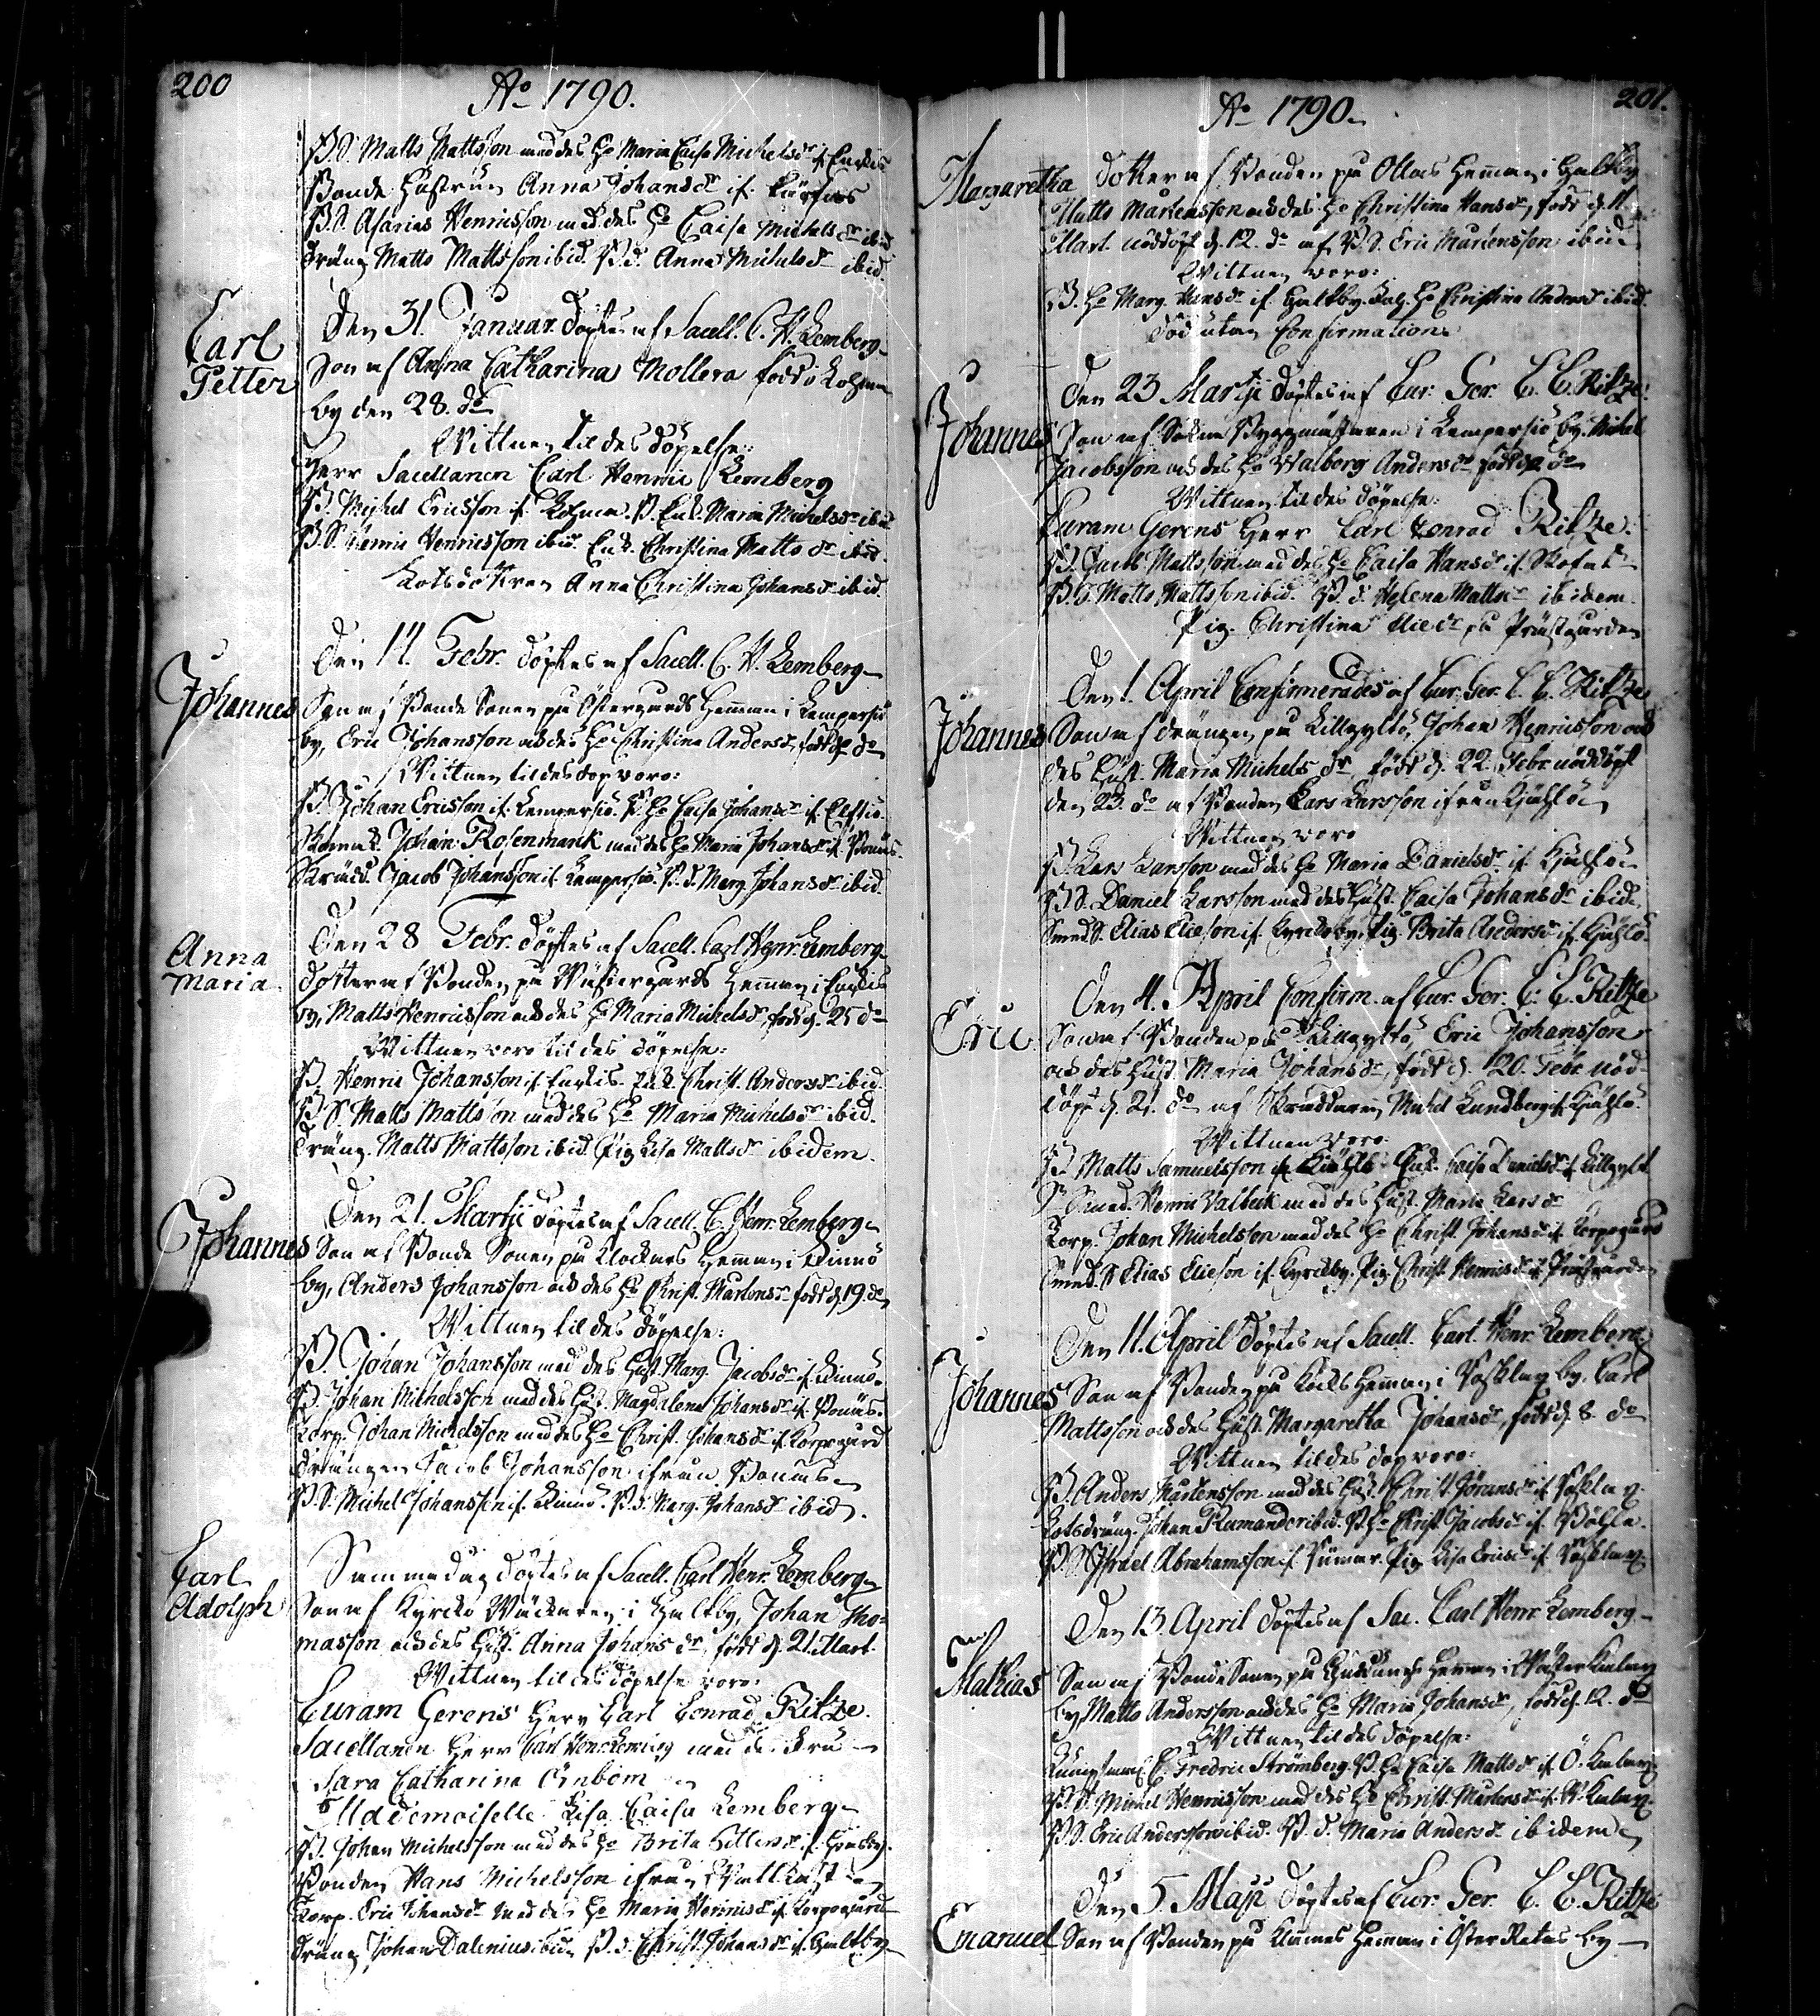 200
Ao 1790.
B. S. Matts Mattsson med des Ho Maria Caisa Michelsdr if. Engkis
Bonde Hustrun Anna Johansdr if.
B. S. Asarias Henricsson med des Ho Caisa Michelsdr ibid
Dräng Matts Mattsson ibid. B. d. Anna Michelsdr ibid.
Carl
Petter
Den 31. Januar. döptes af Sacell. C. H. Lemberg
Son af Anna Catharina Mollera född i
by den 28. do
Wittnen til des döpelse:
Herr Sacellanen Carl Henric Lemberg
B. Michel Ericsson if. B. Enk. Maria Michelsdr ibid
B. S. Henric Henricsson ibid. Enk. Christina Mattsdr ibid.
Anna Christina Johansdr ibid.
Johannes
Den 14. Febr. döptes af Sacell. C. H. Lemberg
Son af Bonde Sonen på Östergårds Heman i Lempersiö
by, Eric Johansson och des Ho Christina Andersdr, född do
Wittnen til des dop voro:
B. Johan Ericsson if. Lempersiö. B. Ho Caisa Johansdr if.
Johan Rosenmark med des Ho Maria Johansdr if. Bonäs.
Skrädd. Jacob Johansson if. Lempersiö. B. d. Marg. Johansdr ibid.
Anna
Maria
Den 28 Febr. döptes af Sacell. Carl Henr. Lemberg
dotter af Bonden på Wästergårds Heman i Engkis
by, Matts Henricsson och des Ho Maria Michelsdr, född d. 25 do
Wittnen voro til des döpelse:
B. Henric Johansson if. Engkis. Enk. Christ. Andersdr ibid.
B. S. Matts Mattsson med des Ho Maria Michelsdr ibid.
Dräng. Matts Mattsson ibid. Pig. Lisa Mattsdr ibidem.
Johannes
Den 21. Martji döptes af Sacell. C. Henr. Lemberg
Son af Bonde Sonen på Klockars Heman i Kimo
by, Anders Johansson och des Ho Christ. Mårtensdr född d. 19. do
Wittnen til des döpelse:
B. Johan Johansson med des Hust. Marg. Jacobsdr if. Kimo.
B. Johan Michelsson med des Hust. Magdalena Johansdr if. Bonäs.
Korp. Johan Michelsson med des Ho Christ. Johansdr if. Korpogård
Drängen Jacob Johansson ifrån Bonäs
B. S. Michel Johansson if. Kimo. B. d. Marg. Johansdr ibid.
Carl
Adolph
Samma dag döptes af Sacell. Carl Henr. Lemberg
Son af Kyrcko Wäcktaren i Hultby, Johan Tho-
masson och des Hust. Anna Johansdr, född d. 21. Mart.
Wittnen til des döpelse voro:
Curam Gerens Herr Carl Conrad Ritze.
Sacellanen Herr Carl Henr. Lemberg med des Fru
Sara Catharina Örnbom
Mademoiselle Lisa Caisa Lemberg
B. Johan Michelsson med des Ho Brita if. Hultby.
Bonden Hans Michelsson ifrån
Korp. Eric Johansdr med des Ho Maria Henricsdr if. Korpogård
Dräng Johan Dalenius ibid. B. d. Christ. Johansdr if. Hultby
201.
Ao 1790.
Margaretha
dotter af Bonden på Ollas Heman i Hultby
Matts Mårtensson och des Ho Christina Hansdr, född d. 11.
Mart. nöddöpt d. 12. do af B. S. Eric Mårtensson ibid.
Wittnen voro:
B. Ho Marg. Hansdr if. Hultby. Ho Christina Andersdr ibid.
död utan Confirmation.
Johannes
Den 23 Martji döptes af Cur. Ger. C. C. Ritze
Son af Sokne Byggmästaren i Lempersiö by. Michel
Jacobsson och des Ho Walborg Andersdr född do
Wittnen til des döpelse:
Curam Gerens Herr Carl Conrad Ritze.
B. Jacob Mattsson med des Ho Caisa Hansdr if.
B. S. Matts Mattsson ibid. B. d. Helena Mattsdr ibidem.
Pig. Christina Eliedr på Prästgården
Johannes
Den 1. April Confirmerades af Cur. Ger. C. C. Ritze
Son af drängen på Lillgylto, Johan Henricsson och
des Hust. Maria Michelsdr född d. 22. Febr. nöddöpt
den 23. do af Bonden Lars Larsson ifrån Kjählö
Wittnen voro
B. Lars Larsson med des Ho Maria Danielsdr if. Kjählö
B. S. Daniel Larsson med des Hust. Caisa Johansdr ibid.
Smed. S. Elias Elieson if. Kyrckoby. Pig. Brita Andersdr if. Kjählö.
Eric
Den 4. April Confirm. af Cur. Ger. C. C. Ritze
Son af Bonden på Lillgylto, Eric Johansson
och des Hust. Maria Johansdr, född d. 20. Febr. nöd-
döpt d. 21. do af Skräddaren Michel Lundberg if. Kjählö.
Wittnen voro.
B. Matts Samuelsson if. Kiählö. Enk. Caisa Danielsdr if. Lillgylt.
B. Smed. Henric Valbeck med des Hust. Maria Larsdr
Korp. Johan Michelsson med des Ho Christ. Johansdr if. Korpogård
Smed. S. Elias Elieson if. Kyrckby. Pig. Christ. Henricsdr if. Prästgården
Johannes
Den 11. April döptes af Sacell. Carl Henr. Lemberg
Son af Bonden på Kocks Heman i Väsklax by. Carl
Mattsson och des Hust. Margaretha Johansdr, född d. 8. do
Wittnen til des dop voro:
B. Anders Mårtensson med des Hust. Christ. Jöransdr if.
Johan Rumander ibid. B. Ho Christ. Jacobsdr if.
B. S. Israel Abrahamsson if. Pig. Lisa Ericsdr if.
Mathias
Den 13. April döptes af Sac. Carl Henr. Lemberg
Son af Bonde Sonen på Heman i Wäster
by, Matts Andersson och des Ho Maria Johansdr, född d. 12. do
Wittnen til des döpelse:
C. Fredric Strömberg. B. Ho Caisa Mattsdr if. Ö.
B. S. Michel Henricsson med des Ho Christ. Mårtensdr if. W.
B. S. Eric Andersson ibid. B. d. Maria Andersdr ibidem
Emanuel
Den 5. Maji döptes af Cur. Ger. C. C. Ritze
Son af Bonden på Klemes Heman i Öster Retais by